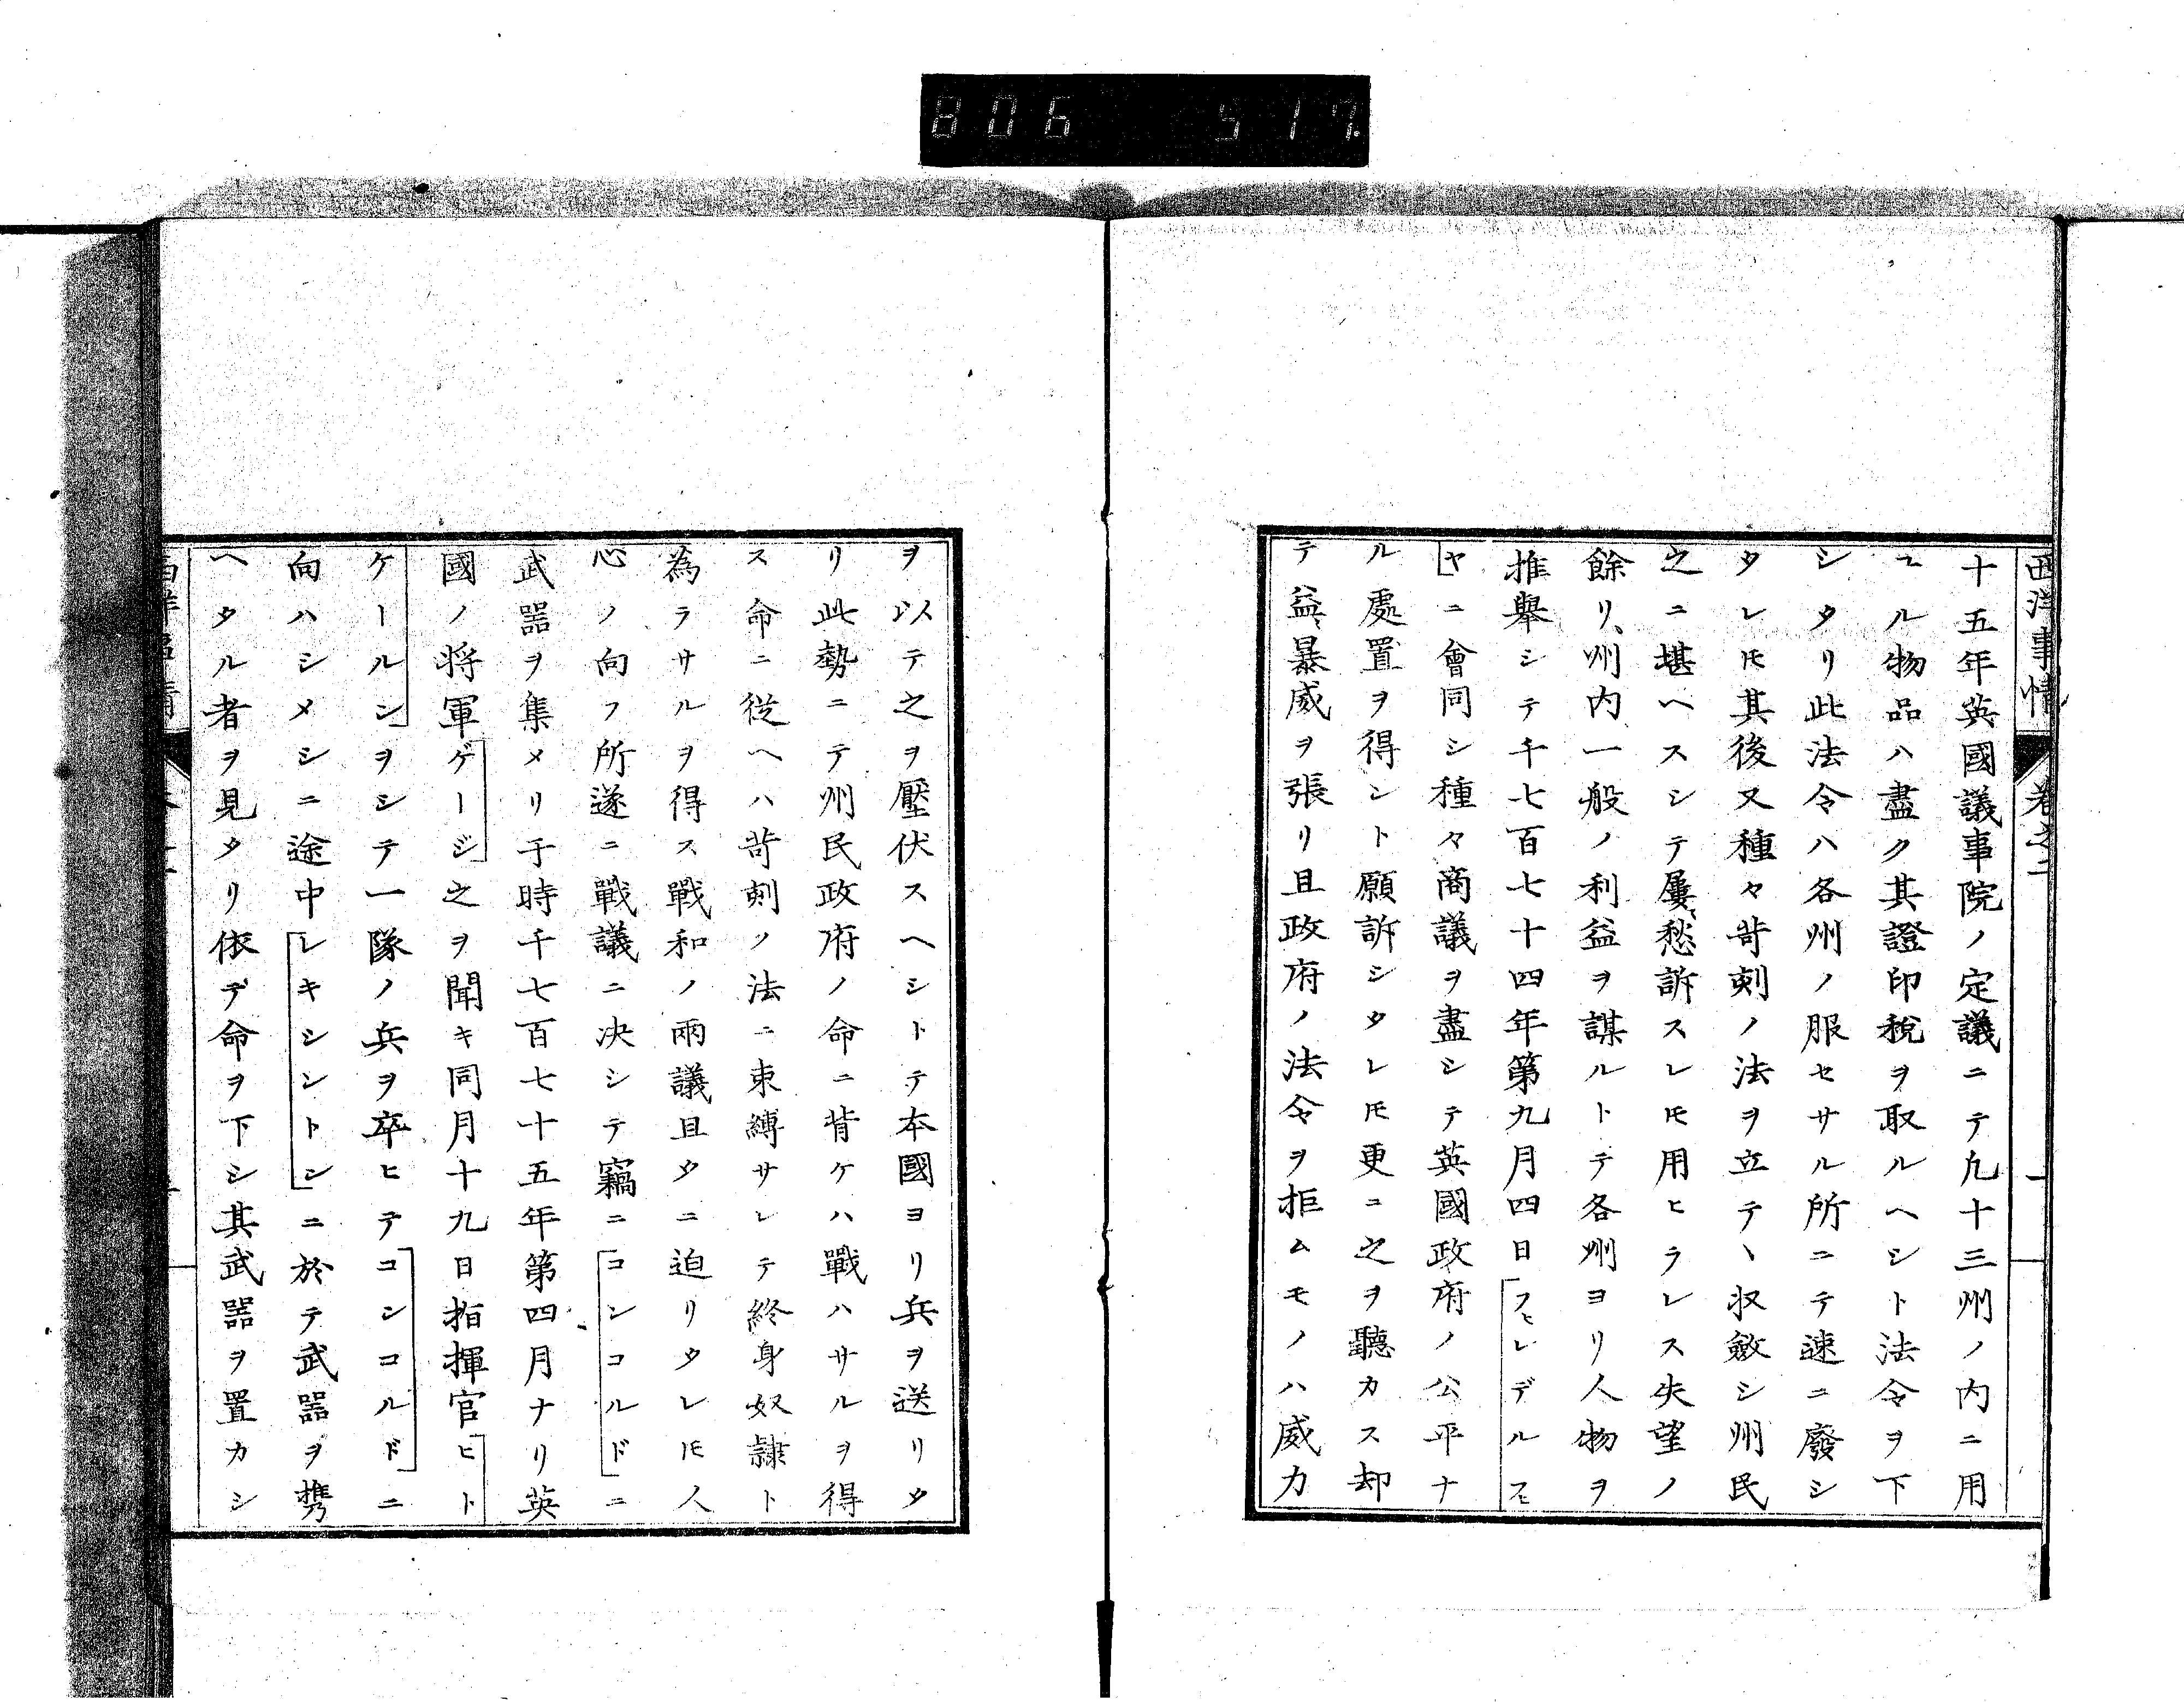 806 517.
西洋事情 卷之二 一
十五年英國議事院ノ定議ニテ凡十三州ノ内ニ用
ユル物品ハ盡ク其證印税ヲ取ルヘシト法令ヲ下
シタリ此法令ハ各州ノ服セサル所ニテ速ニ廢シ
タレ𪜈其後又種々苛刻ノ法ヲ立テヽ収斂シ州民
之ニ堪ヘスシテ屢〻愁訴スレ𪜈用ヒラレス失望ノ
餘リ州内一般ノ利益ヲ謀ルトテ各州ヨリ人物ヲ
推擧シテ千七百七十四年第九月四日フヒレデルヒ
ヤニ會同シ種々商議ヲ盡シテ英國政府ノ公平ナ
ル處置ヲ得ント願訴シタレ𪜈更ニ之ヲ聽カス却
テ益〻暴威ヲ張リ且政府ノ法令ヲ拒ムモノハ威力
ヲ以テ之ヲ壓伏スヘシトテ本國ヨリ兵ヲ送リタ
リ此勢ニテ州民政府ノ命ニ背ケハ戰ハサルヲ得
ス命ニ從ヘハ苛刻ノ法ニ束縛サレテ終身奴隷ト
為ラサルヲ得ス戰和ノ兩議且タニ迫リタレ𪜈人
心ノ向フ所遂ニ戰議ニ决シテ竊ニコンコルドニ
武噐ヲ集メリ于時千七百七十五年第四月ナリ英
國ノ将軍ゲージ之ヲ聞キ同月十九日指揮官ヒト
ケールンヲシテ一隊ノ兵ヲ卒ヒテコンコルドニ
向ハシメシニ途中レキシントンニ於テ武噐ヲ携
ヘタル者ヲ見タリ依テ命ヲ下シ其武噐ヲ置カシ